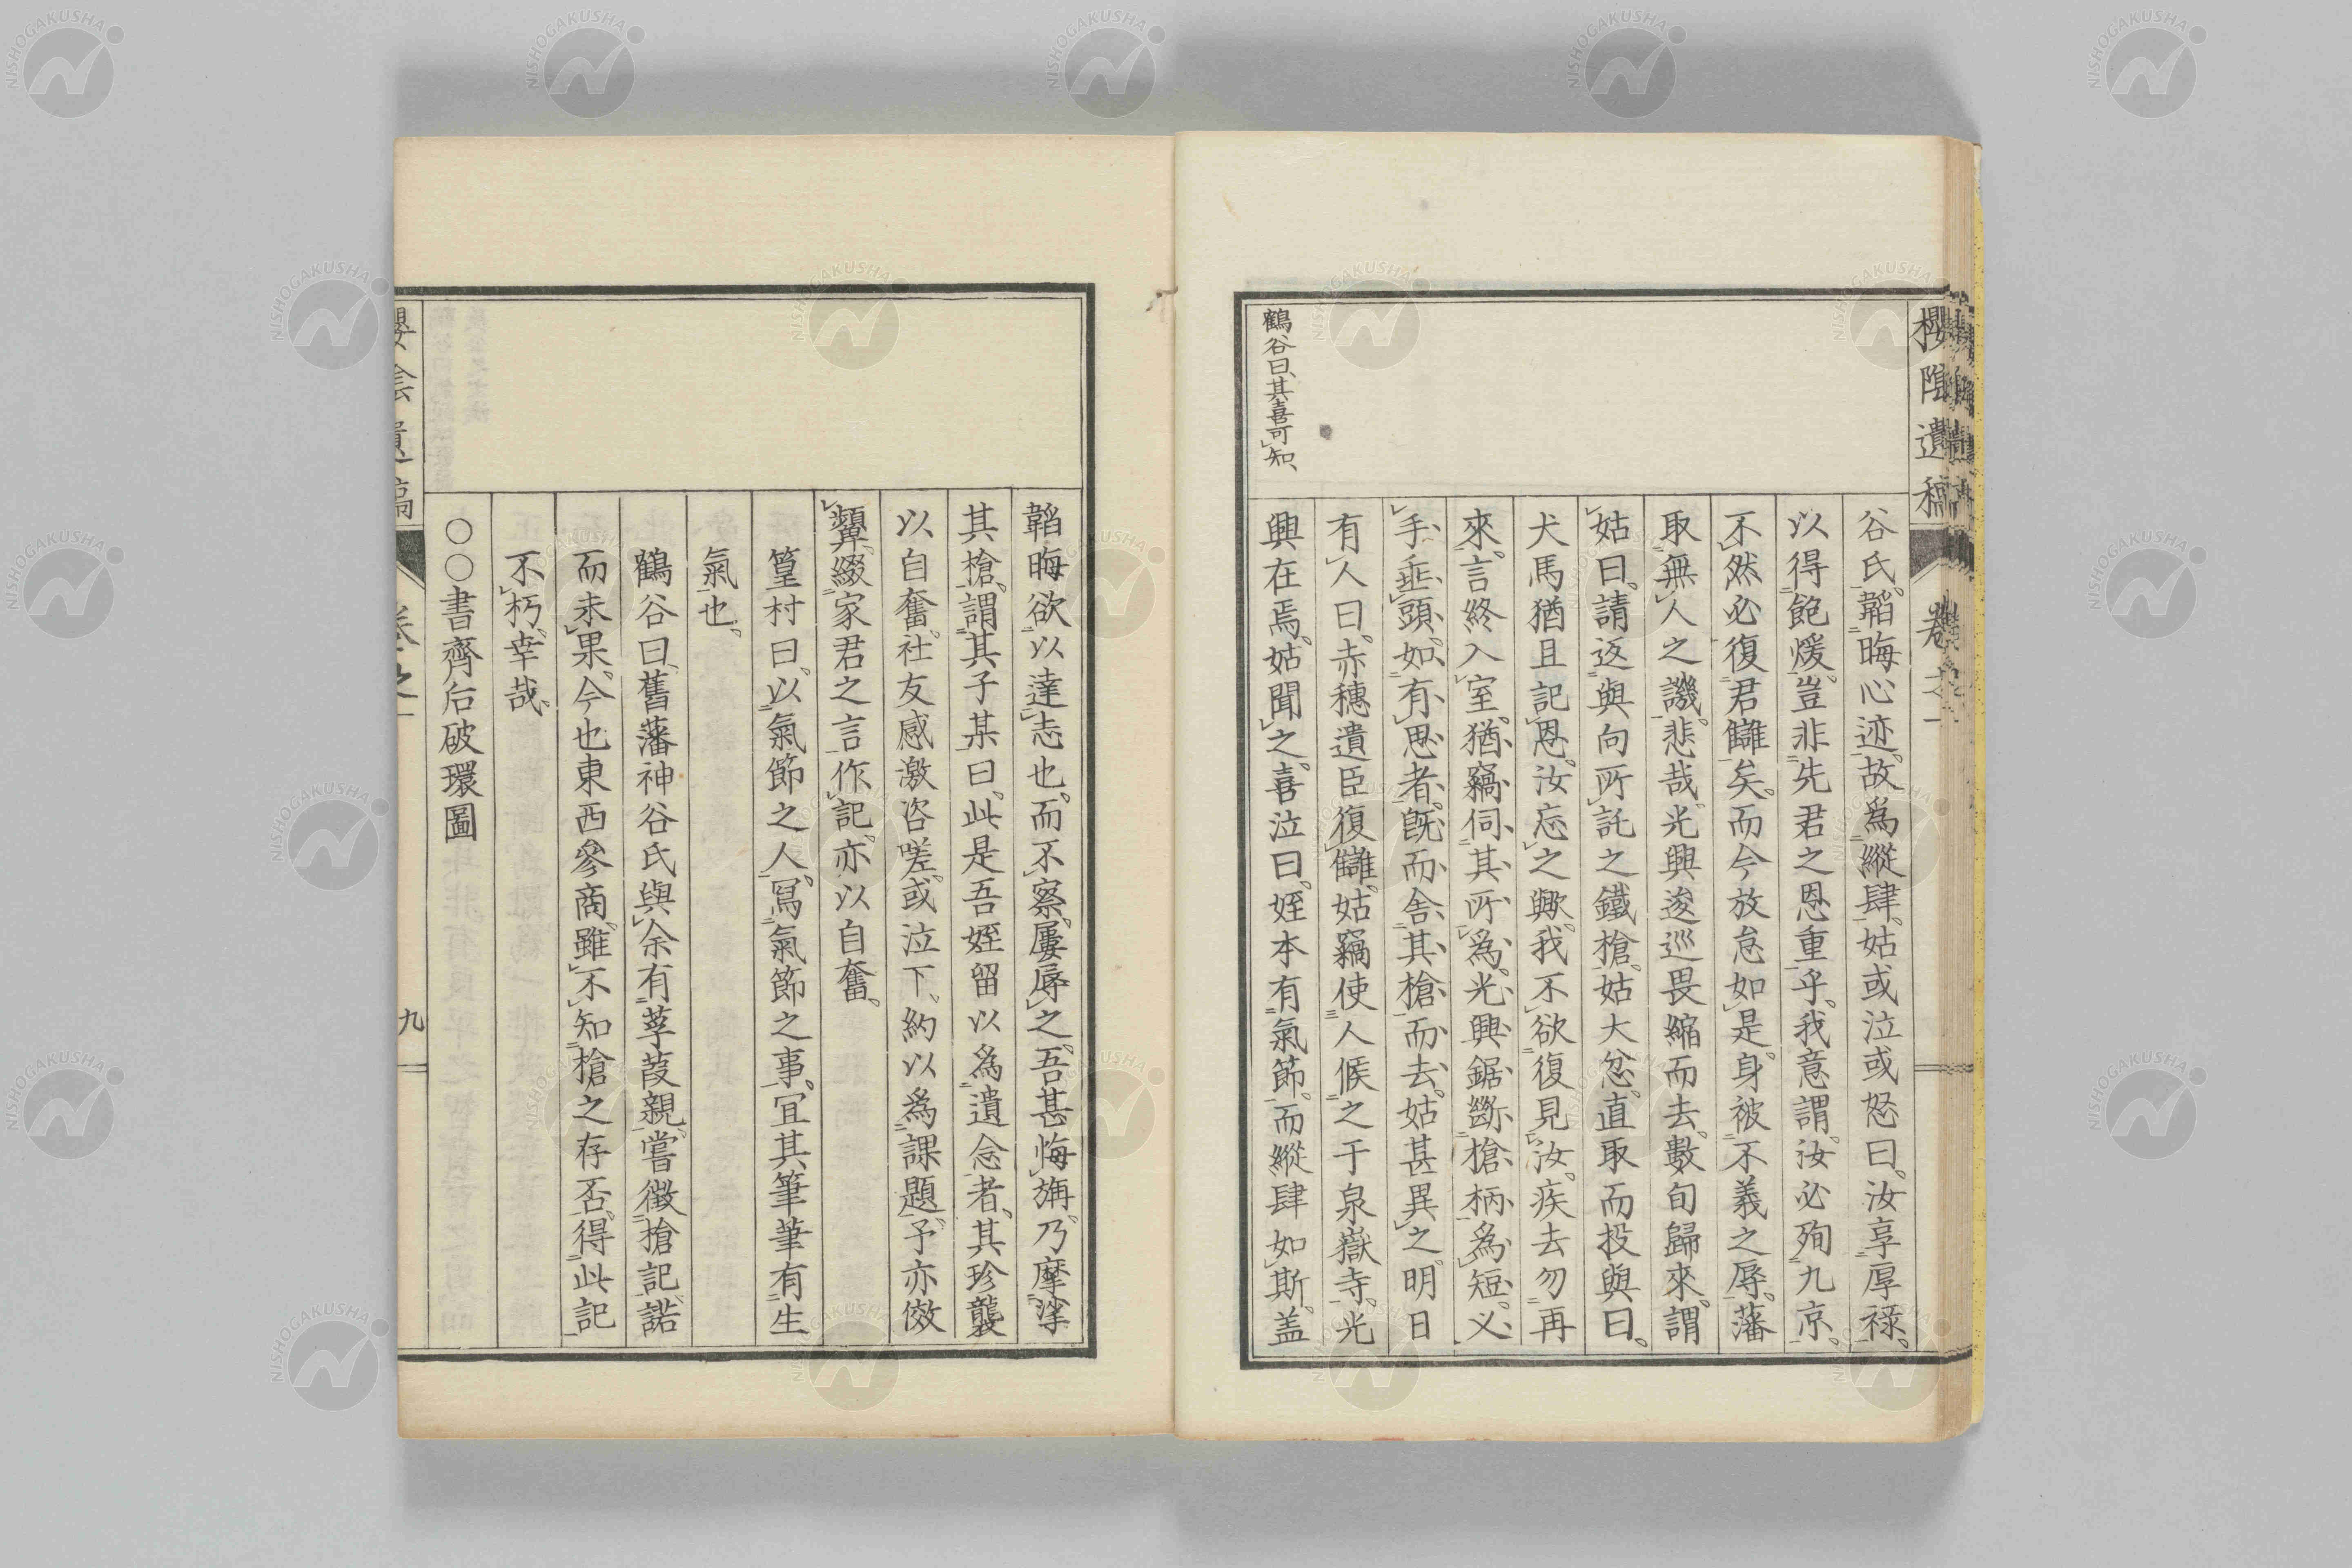 櫻陰遺稿
卷之一
谷氏韜晦心迹故爲縱肆姑或泣或怒曰汝享厚祿
以得飽煖豈非先君之恩重乎我意謂汝必殉九京
不然必復君讎矣而今放怠如是身被不義之辱藩
取無人之譏悲哉光興逡巡畏縮而去數旬歸來謂
姑曰請返與向所託之鐵槍姑大忿直取而投與曰
犬馬猶且記恩汝忘之歟我不欲復見汝疾去勿再
來言終入室猶竊伺其所爲光興鋸斷槍柄爲短又
手垂頭如有思者既而舍其槍而去姑甚異之明日
有人曰赤穗遺臣復讎姑竊使人候之于泉嶽寺光
興在焉姑聞之喜泣曰姪本有氣節而縱肆如斯蓋
鶴谷曰其喜可知
韜晦欲以達志也而不察屢辱之吾甚悔旃乃摩挲
其槍謂其子某曰此是吾姪留以爲遺念者其珍襲
以自奮社友感激咨嗟或泣下約以爲課題予亦傚
顰綴家君之言作記亦以自奮
篁村曰以氣節之人寫氣節之事冝其筆筆有生
氣也
鶴谷曰舊藩神谷氏與余有莩葭親嘗徵槍記諾
而未果今也東西參商雖不知槍之存否得此記
不朽幸哉
〇〇書齊后破環圖
櫻陰遺稿
卷之一
九